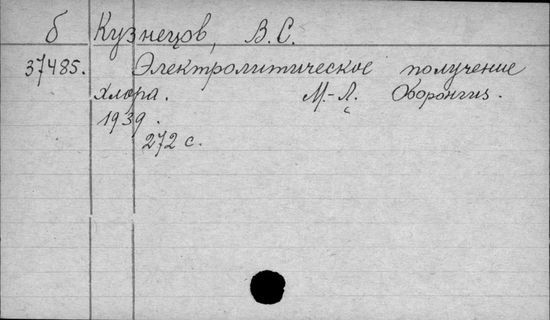 б Кузнецов, В.С.
37485. Электролитическое получение
хлора. М.-Л. Оборонгиз.
1939.
272 с.